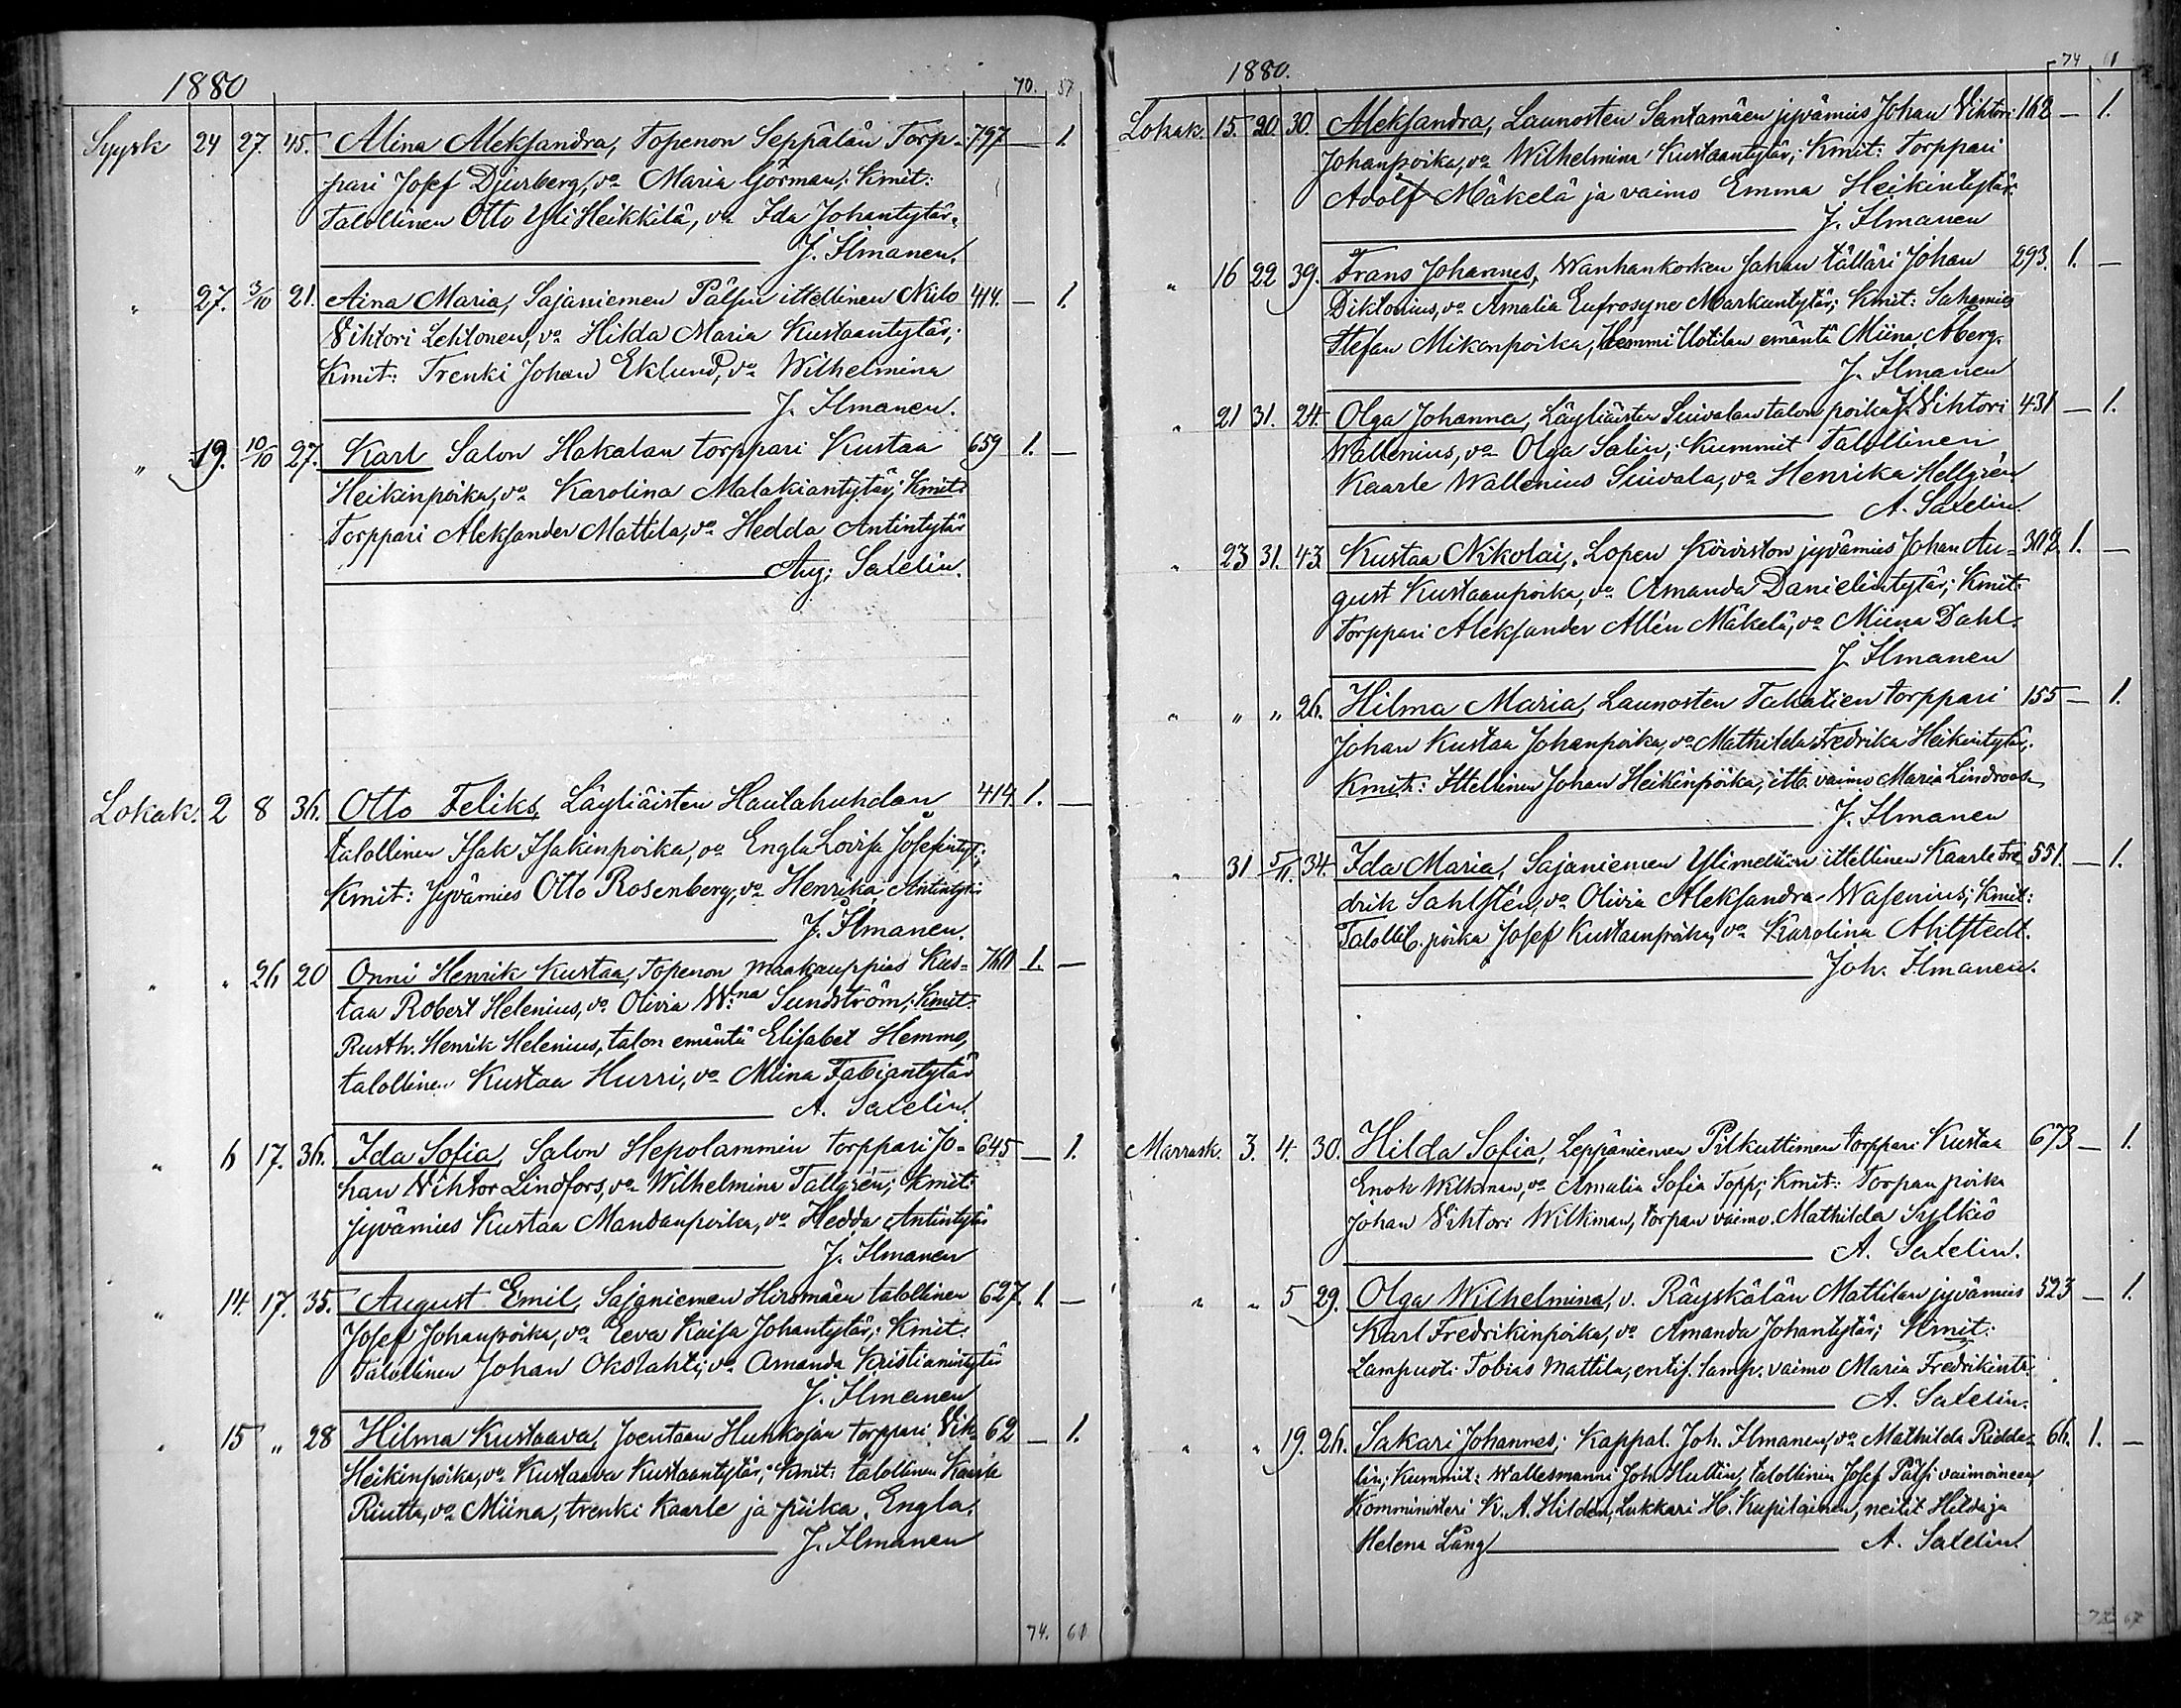 1880
70. 57
Syysk 24 27. 45. Alina Aleksandra, Topenon Seppälän Torp- 797 — 1.
pari Josef Djurberg, vo Maria Görman; Kmit:
Talollinen Otto Yli Heikkilä, vo Ida Johantytär.
J. Ilmanen.
" 27. 3/10 21. Aina Maria, Sajaniemen Pälsin ittellinen Niilo 414. — 1.
Vihtori Lehtonen, vo Hilda Maria Kustaantytär;
Kmit: Trenki Johan Eklund, vo Wilhelmina
J. Ilmanen.
" 19. 10/10 27. Karl Salon Hakalan torppari Kustaa 659 1. —
Heikinpoika, vo Karolina Malakiantytär; Kmit:
Torppari Aleksander Mattila, vo Hedda Antintytär
Aug. Saxelin.
Lokak. 2 8 36. Otto Feliks, Läyliäisten Hautahuhdan 414. 1. —
talollinen Isak Isakinpoika, vo Engla Lovisa Josefintyt;
Kmit: Jyvämies Otto Rosenberg, vo Henrika Antintyt:
J. Ilmanen.
" " 26 20 Onni Henrik Kustaa, Topenon maakauppias Kus- 760 1. —
taa Robert Helenius, vo Olivia W:na Sundström; Kmit:
Rusth. Henrik Helenius, talon emäntä Elisabet Hemmo,
talollinen Kustaa Hurri, vo Miina Fabiantytär
A. Saxelin.
" 6 17. 36. Ida Sofia, Salon Hepolammin torppari Jo- 645 — 1.
han Vihtor Lindfors, vo Wilhelmina Tallgrén; Kmit:
jyvämies Kustaa Mandanpoika, vo Hedda Antintytär
J. Ilmanen
" 14. 17. 35. August Emil, Sajaniemen Hirsmäen talollinen 627. 1. —
Josef Johanpoika, vo Eeva Kaisa Johantytär; Kmit:
Talollinen Johan Okslahti, vo Amanda Kristianintytär
J. Ilmanen
" 15 " 28 Hilma Kustaava, Joentaan Huhkojan torppari Vih. 62 — 1.
Heikinpoika, vo Kustaava Kustaantytär; Kmit: talollinen Kaarle
Riutta, vo Miina, trenki Kaarle ja piika Engla.
J. Ilmanen
74. 61
1880.
74 61
Lokak. 15. 20 30. Aleksandra, Launosten Santamäen jyvämies Johan Vihtori 162 — 1.
Johanpoika, vo Wilhelmina Kustaantytär; Kmit: Torppari
Adolf Mäkelä ja vaimo Emma Heikintytär
J. Ilmanen
" 16 22 39. Frans Johannes, Wanhankosken Sahan tälläri Johan 293. 1. —
Diktonius, vo Amalia Eufrosyne Markuntytär; Kmit: Sahamies
Stefan Mikonpoika, Hemmi Uotilan emäntä Miina Åberg.
J. Ilmanen
" 21 31. 24. Olga Johanna, Läyliäisten Suivalan talon poika J. Vihtori 431 — 1.
Wallenius, vo Olga Salin; Kummit Talollinen
Kaarle Wallenius Suivala, vo Henrika Hellgrén
A. Saxelin
" 23 31. 43. Kustaa Nikolai, Lopen Koiviston jyvämies Johan Au- 302. 1. —
gust Kustaanpoika, vo Amanda Danielintytär; Kmit:
Torppari Aleksander Allén Mäkelä, vo Miina Dahl.
J. Ilmanen
" " " 26. Hilma Maria, Launosten Takatien torppari 155 — 1.
Johan Kustaa Johanpoika, vo Mathilda Fredrika Heikintytär.
Kmit: Ittellinen Johan Heikinpoika, itt. vaimo Maria Lindroos
J. Ilmanen
" 31 5/11. 34. Ida Maria, Sajaniemen ittellinen Kaarle Fre- 551. — 1.
drik Sahlstén, vo Olivia Aleksandra Wasenius; Kmit:
Talolli. poika Josef Kustaanpoika, vo Karolina Ahlstedt.
Joh. Ilmanen.
Marrask. 3. 4. 30. Hilda Sofia, Leppäniemen Pilkuttimen torppari Kustaa 673 — 1.
Enok Wilkman, vo Amalia Sofia Topp; Kmit: Torpan poika
Johan Vihtori Wilkman, torpan vaimo Mathilda Sylkiö
A. Saxelin.
" " 5 29. Olga Wilhelmina, v. Räyskälän Mattilan jyvämies 523 — 1.
Karl Fredrikinpoika, vo Amanda Johantytär; Kmit:
Lampuoti Tobias Mattila, entis. lamp. vaimo Maria Fredrikint:
A. Saxelin.
" " 19. 26. Sakari Johannes; Kappal. Joh. Ilmanen, vo Mathilda Ridda- 66. 1. —
lin; Kummit: Wallesmanni Joh. Hullin, talollinen Josef Pälsi vaimoineen,
Komministeri K. A. Hildén, Lukkari H. Kupilainen, neitit Hilda ja
Helena Lång A. Saxelin
78 67